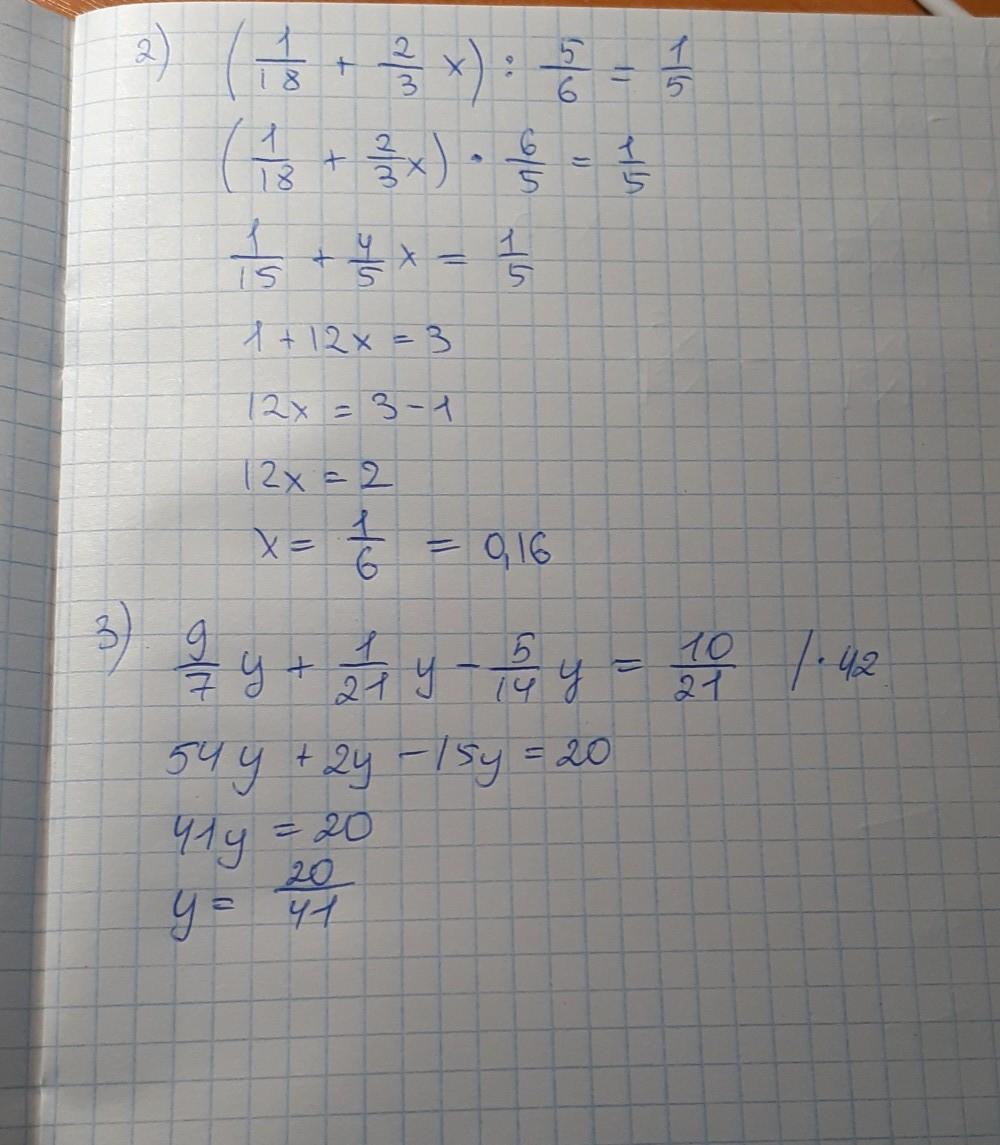 2) (1/18 + 2/3 x) : 5/6 = 1/5
(1/18 + 2/3 x) · 6/5 = 1/5
1/15 + 4/5 x = 1/5
1 + 12x = 3
12x = 3 - 1
12x = 2
x = 1/6 = 0,16
3) 9/7 y + 1/21 y - 5/14 y = 10/21 /· 42
54y + 2y - 15y = 20
41y = 20
y = 20/41